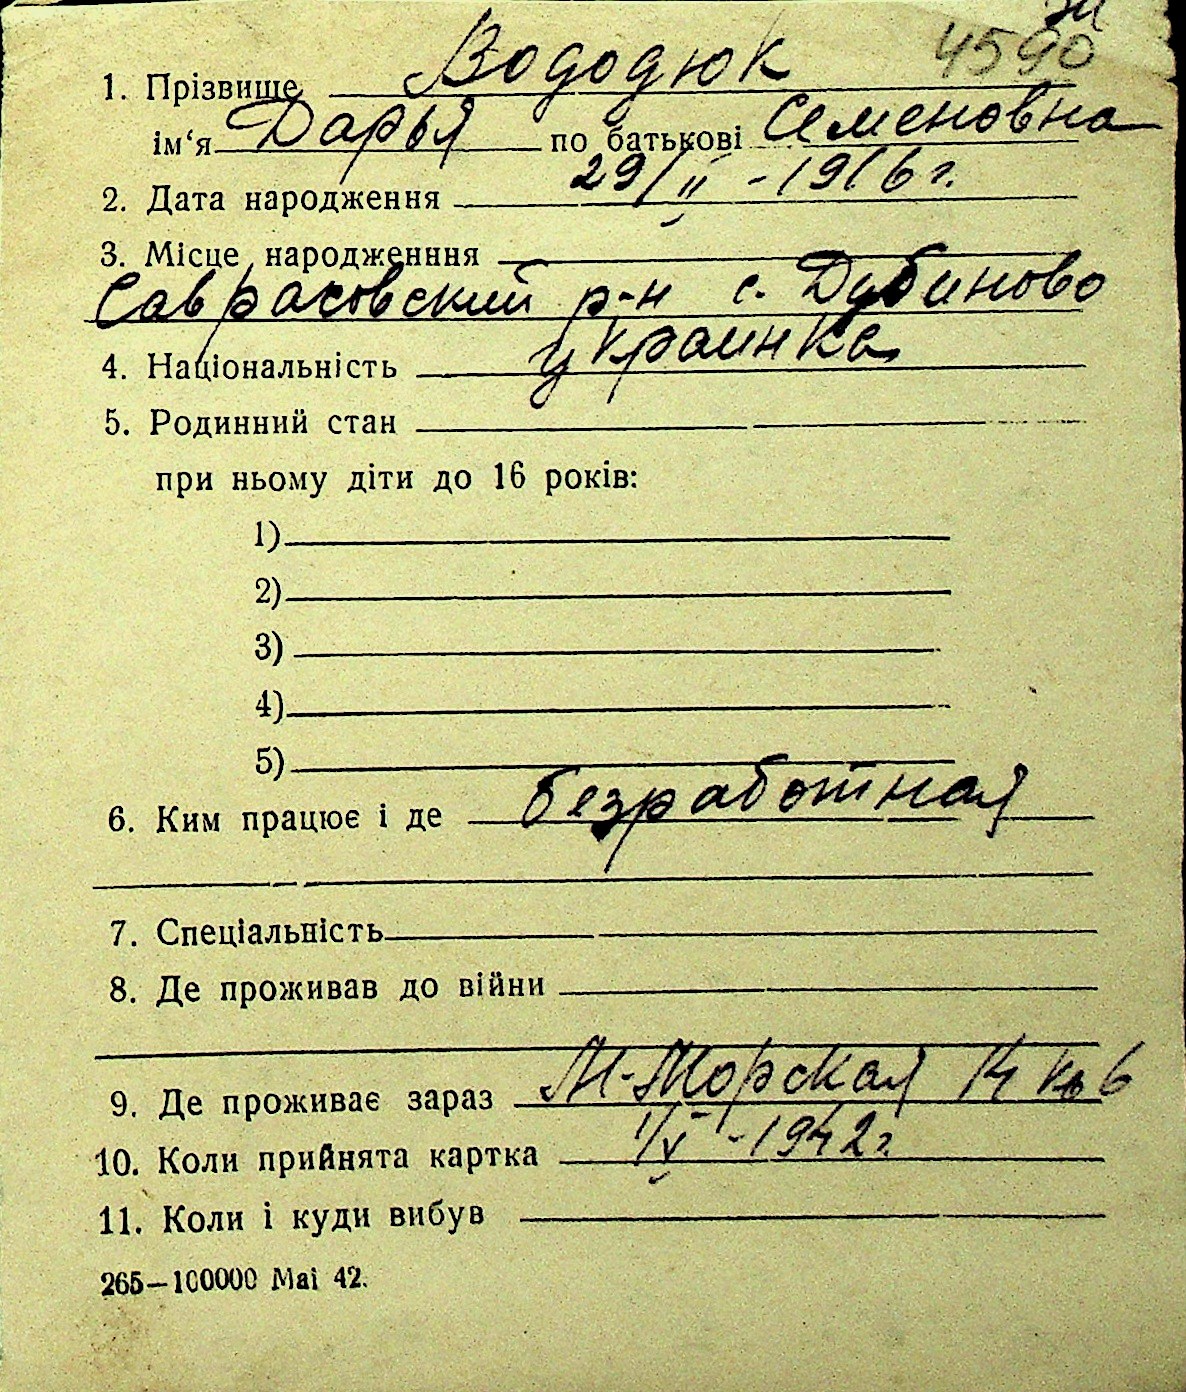 4590
1. Прізвище Вододюк
ім‘я Дарья по батькові Семеновна
2. Дата народження 29/II - 1916 г.
3. Місце народженння
Савранский р-н с. Дубиново
4. Національність украинка
5. Родинний стан
при ньому діти до 16 років:
1)
2)
3)
4)
5)
6. Ким працює і де безработная
7. Спеціальність
8. Де проживав до війни
9. Де проживає зараз М-Морская 14 кв 6
10. Коли прийнята картка 1/V - 1942 г.
11. Коли і куди вибув
265—100000 Mai 42.